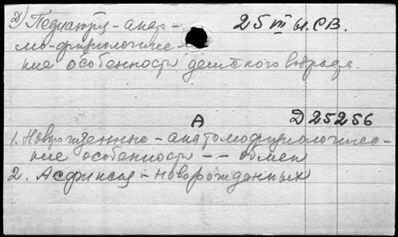 2) Педиатрия - анато-  25 III Ы.СВ.
мо-физиологичес-
кие особенности детского возраста.
А  Д 25256
1. Новорожденные - анатомофизиологичес-
кие особенности -- обмен
2. Асфиксия - новорожденных